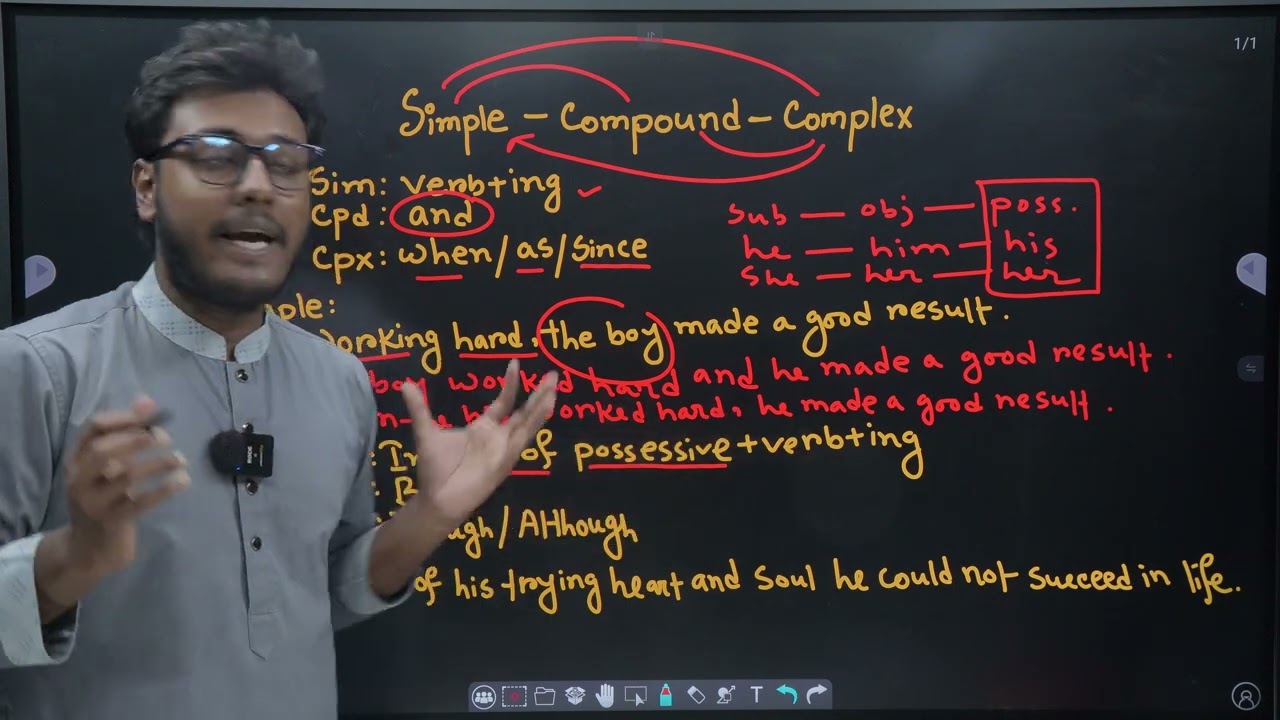 1/1
Simple - Compound - Complex
Sim: verb+ing
Cpd: and
Cpx: when/as/Since
Sub — obj — poss.
he — him — his
She — her — her
ple:
orking hard, the boy made a good result.
boy worked hard and he made a good result.
orked hard, he made a good result.
: In of possessive+verb+ing
: B
ugh/Although
of his trying heart and Soul he could not succeed in life.
T